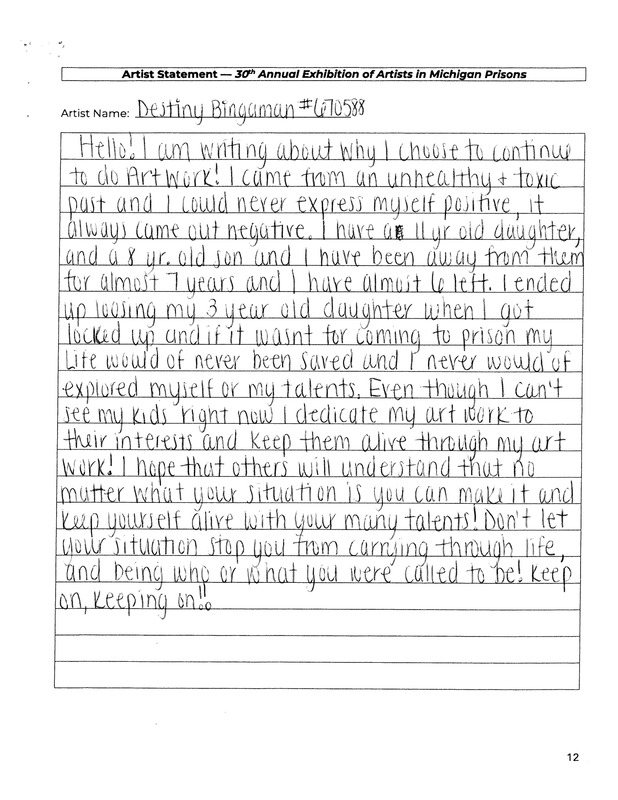 Artist Statement — 30th Annual Exhibition of Artists in Michigan Prisons
Artist Name: Destiny Bingaman #670588
Hello! I am writing about why I choose to continue
to do Art Work! I came from an unhealthy + toxic
past and I could never express myself positive, it
always came out negative. I have a 11 yr old daughter,
and a 8 yr. old son and I have been away from them
for almost 7 years and I have almost 6 left. I ended
up loosing my 3 year old daughter when I got
locked up and if it wasnt for coming to prison my
Life would of never been saved and I never would of
explored myself or my talents. Even though I can't
see my kids right now I dedicate my art work to
their interests and keep them alive through my art
work! I hope that others will understand that no
matter what your situation is you can make it and
keep yourself alive with your many talents! Don't let
your situation stop you from carrying through life,
and being who or what you were called to be! Keep
on, Keeping on!!
12